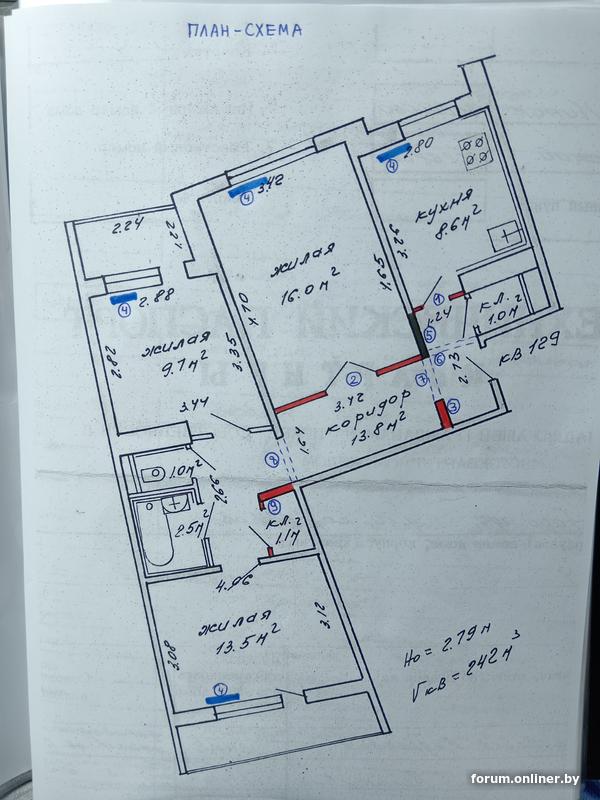 ПЛАН-СХЕМА
2.80
④
3.42
④
кухня
8.6м²
2.24
1.22
жилая
16.0м²
3.23
5.63
2.88
④
4.70
①
1.24
кл.2
1.0м²
жилая
9.7м²
2.82
3.35
⑤
⑥
кв 129
2.73
②
⑦
3.42
коридор
13.8м²
③
3.44
1.64
⑧
1.0м²
2.5м²
⑨
кл.2
1.1м
4.96
жилая
13.5м²
3.08
3.12
④
Hо = 2.79 м
Vкв = 242 м³
forum.onliner.by